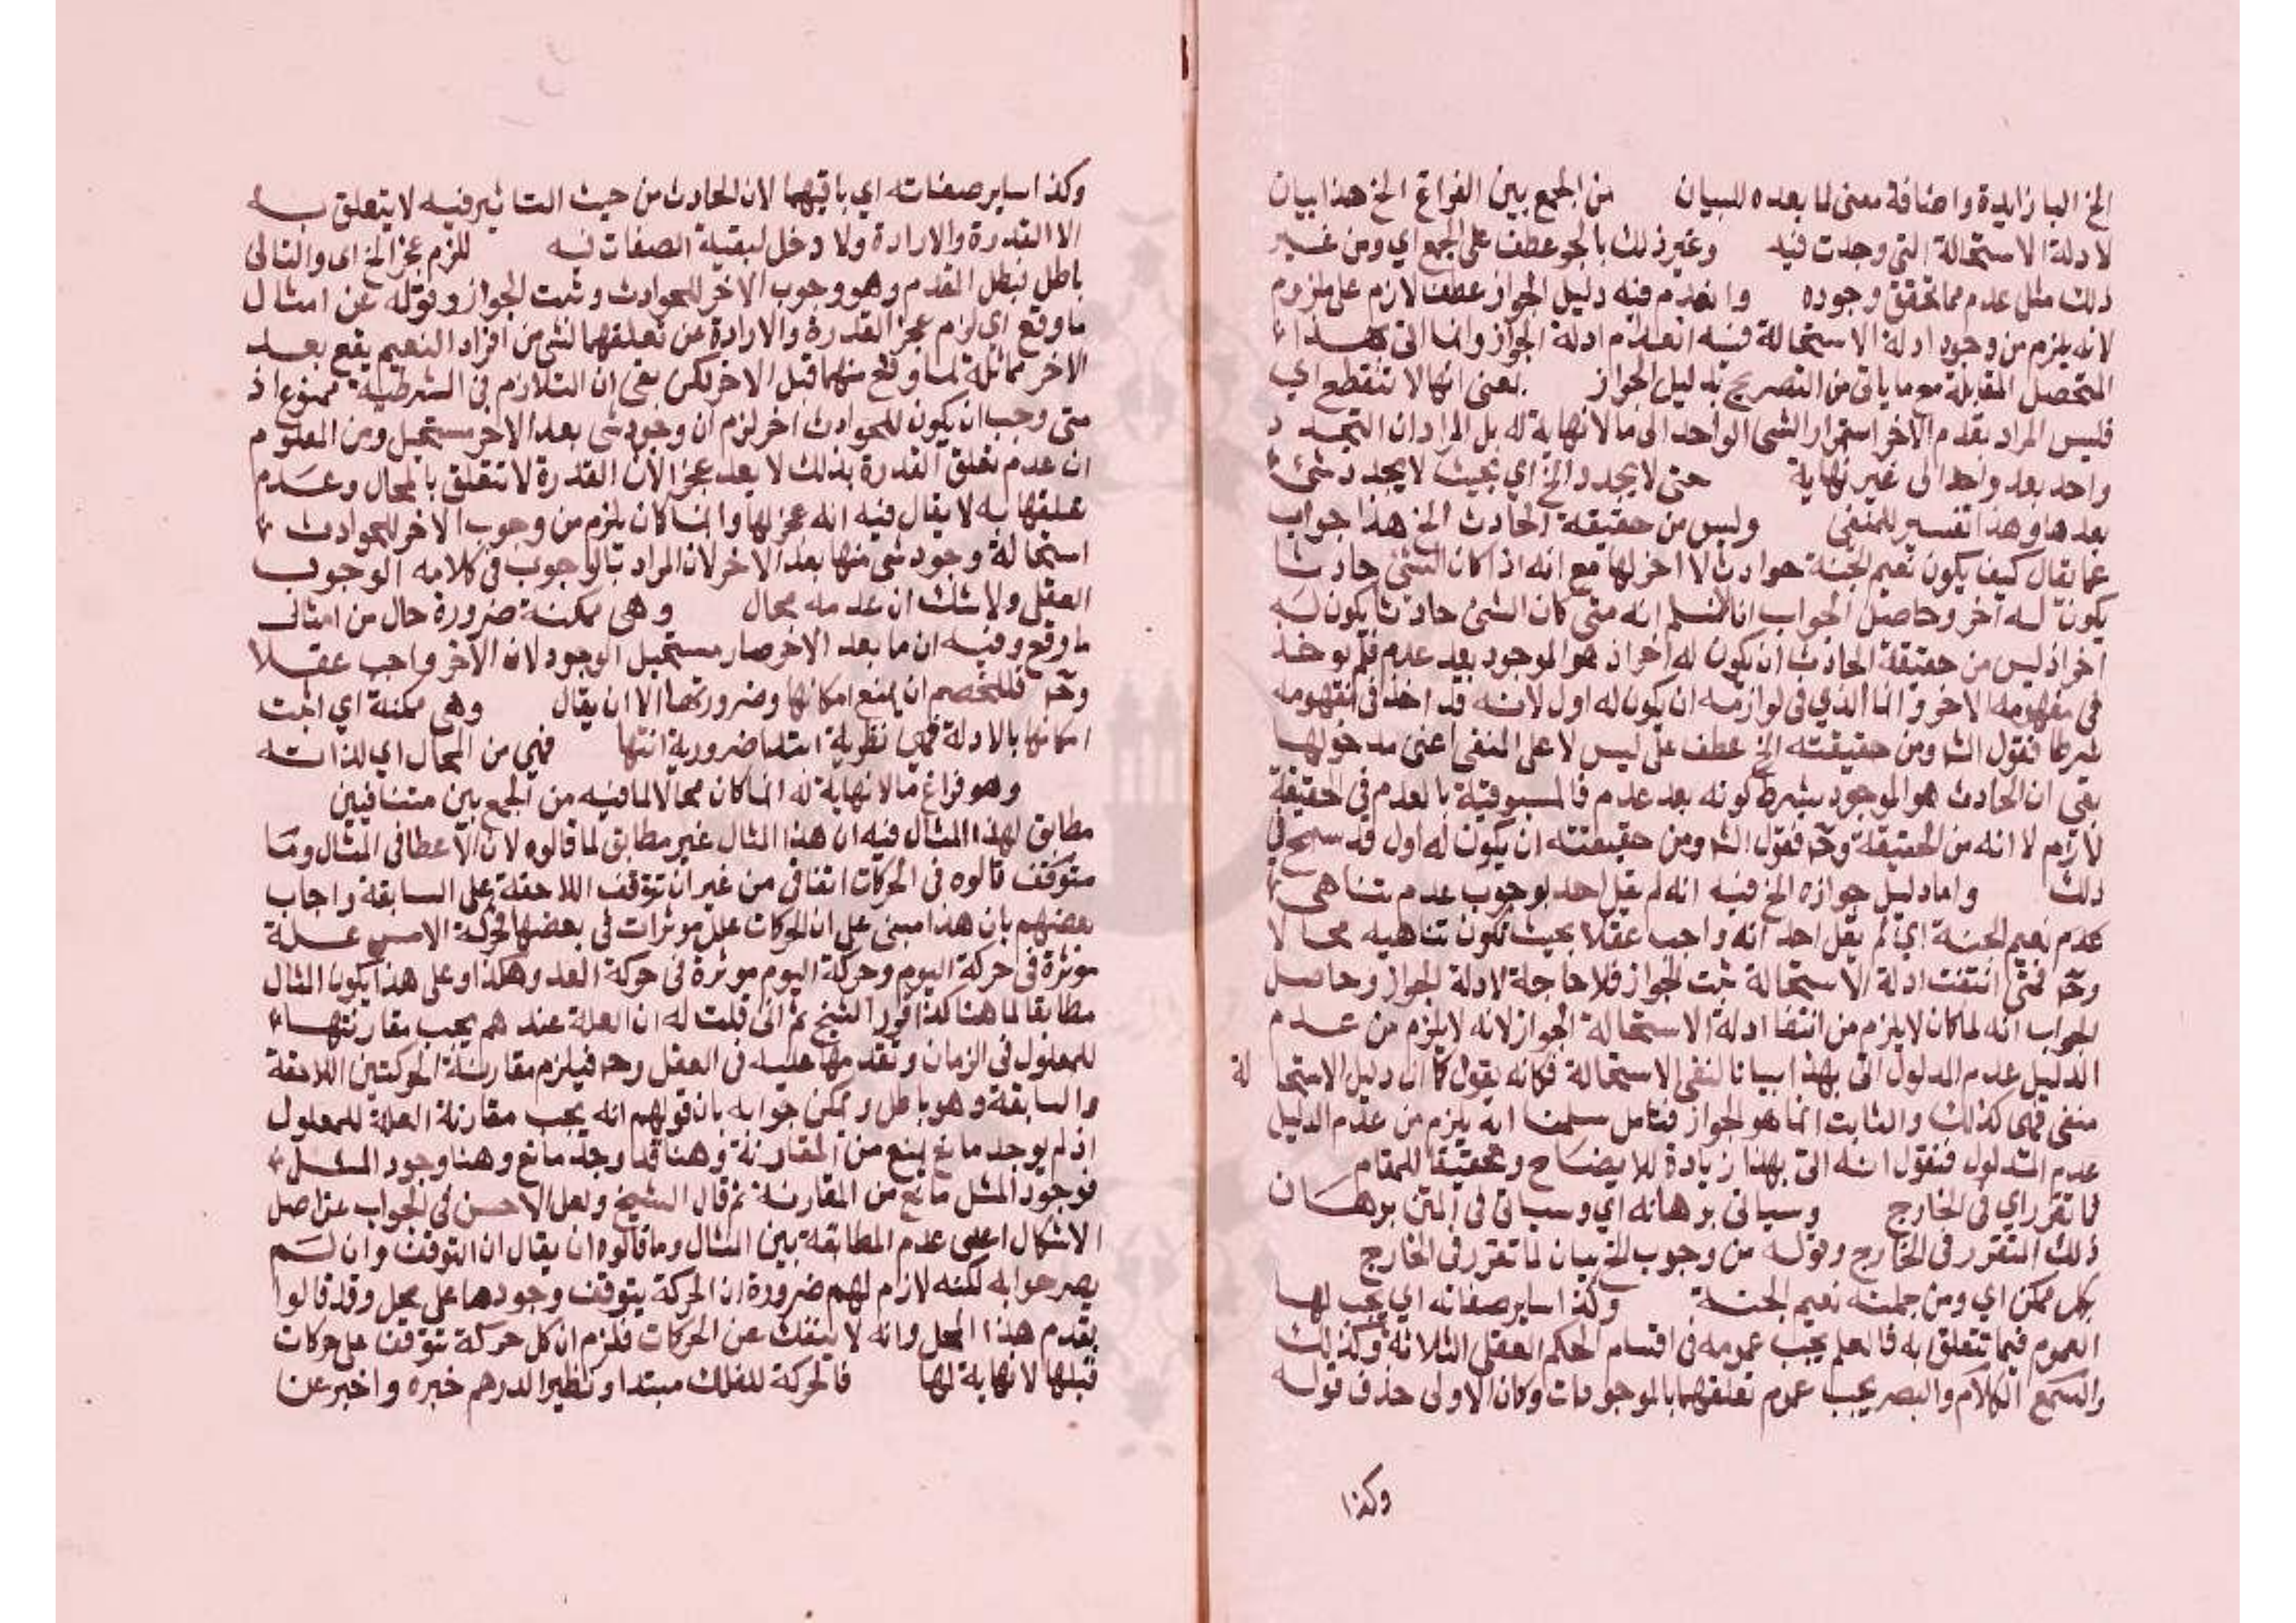 الخ البا زايدة واضافة معنى لما بعده للبيان من الجمع بين الفراغ الخ هذا بيان
لادلة الاستحالة التي وجدت فيه وغير ذلك بالجر عطف على الجمع اي ومن غير
ذلك مثل عدم ما تحقق وجوده وانعدم فيه دليل الجواز عطف لازم على ملزوم
لانه يلزم من وجود ادلة الاستحالة فيه انعدام ادلة الجواز وانما اتى بهذا
لتحصل المقابلة مع ما ياتي من التصريح بدليل الجواز بمعنى انها لا تنقطع اي
فليس المراد بعدم الاخر استمرار الشي الواحد الى ما لا نهاية له بل المراد ان التجدد
واحد بعد واحد الى غير نهاية حتى لا يجدد الخ اي بحيث لا يجدد شئ
بعدها وهذا تفسير للمنفى وليس من حقيقة الحادث الخ هذا جواب
عما يقال كيف يكون نعيم الجنة حوادث لا اخر لها مع انه اذا كان الشئ حادثا
يكون له اخر وحاصل الجواب انا لا نسلم انه متى كان الشئ حادثا يكون له
اخر اذ ليس من حقيقة الحادث ان يكون له اخر اذ هو الموجود بعد عدم فلم يوخذ
في مفهومه الاخر وانما الذي في لوازمه ان يكون له اول لانه قد اخذ في مفهومه
شرطا فقول الش ومن حقيقته الخ عطف على ليس لا على المنفى اعنى مدخولها
بقى ان الحادث هو الموجود بشرط كونه بعد عدم فالمسبوقية بالعدم في الحقيقة
لازم لا انه من الحقيقة وح فقول الش ومن حقيقته ان يكون له اول قد سمح في
ذلك واما دليل جوازه الخ فيه انه لم يقل احد بوجوب عدم تناهى
عدم نعيم الجنة اي لم يقل احد انه واجب عقلا بحيث تكون تناهيه محالا
وح فمتى انتفت ادلة الاستحالة ثبت الجواز فلا حاجة لادلة الجواز وحاصل
الجواب انه لما كان لا يلزم من انتفا ادلة الاستحالة الجواز لانه لا يلزم من عدم
الدليل عدم المدلول اتى بهذا بيانا لنفى الاستحالة فكانه يقول كما ان دليل الاستحالة
منفى فهى كذلك والثابت انما هو الجواز فتامل سلمنا انه يلزم من عدم الدليل
عدم المدلول فنقول انه اتى بهذا زيادة للايضاح وتحقيقا للمقام
فما تقرر اي في الخارج وسياتى برهانه اي وسياتى في المتن برهان
ذلك التقرر في الخارج وقوله من وجوب الخ بيان لما تقرر في الخارج
بكل ممكن اي ومن جملته نعيم الجنة وكذا ساير صفاته اي يجب لها
العموم فيما تتعلق به فالعلم يجب عمومه في اقسام الحكم العقلي الثلاثة وكذلك
والسمع الكلام والبصر يجب عموم تعلقهما بالموجودات وكان الاولى حذف قوله
وكذا
وكذا ساير صفاته اي باقيها لان الحادث من حيث التاثير فيه لا يتعلق به
الا القدرة والارادة ولا دخل لبقية الصفات فيه للزم عجز الخ اى والتالى
باطل فبطل المقدم وهو وجوب الاخر للحوادث وثبت الجواز وقوله عن امثال
ما وقع اي لزم عجز القدرة والارادة عن تعلقهما لشي من افراد النعيم يقع بعد
الاخر مماثلة لما وقع منهما قبل الاخر لكن بقى ان التلازم في الشرطية ممنوع اذ
متى وجب ان يكون للحوادث اخر لزم ان وجود شى بعد الاخر مستحيل ومن المعلوم
ان عدم تعلق القدرة بذلك لا يعد عجزا لان القدرة لا تتعلق بالمحال وعدم
تعلقها به لا يقال فيه انه عجز لها وانما كان يلزم من وجوب الاخر للحوادث
استحالة وجود شى منها بعد الاخر لان المراد بالوجوب في كلامه الوجوب
العقلى ولا شك ان عدمه محال وهى ممكنة ضرورة حال من امثال
ما وقع وفيه ان ما بعد الاخر صار مستحيل الوجود لان الاخر واجب عقلا
وح فللخصم ان يمنع امكانها وضرورتها الا ان يقال وهى ممكنة اي اثبت
امكانها بالادلة فهى نظرية ابتدا ضرورية انتها فهى من المحال اي لذاته
وهو فراغ ما لا نهاية له انما كان محالا لما فيه من الجمع بين متنافيين
مطابق لهذا المثال فيه ان هذا المثال غير مطابق لما قالوه لان الاعطا في المثال وما
متوقف قالوه في الحركات اتفاقى من غير ان تتوقف اللاحقة على السابقة واجاب
بعضهم بان هذا مبنى على ان الحركات علل موثرات في بعضها فحركة الامس علة
موثرة في حركة اليوم وحركة اليوم موثرة في حركة الغد وهكذا وعلى هذا يكون المثال
مطابقا لما هنا كذا قرر الشيخ ثم انى قلت له ان العلة عندهم يجب مقارنتها
للمعلول في الزمان وتقدمها عليه في العقل وح فيلزم مقارنة الحركتين اللاحقة
والسابقة وهو باطل ويمكن جوابه بان قولهم انه يجب مقارنة العلة للمعلول
اذ لم يوجد مانع يمنع من المقارنة وهنا قد وجد مانع وهنا وجود المثل
فوجود المثل مانع من المقارنة ثم قال الشيخ ولعل الاحسن في الجواب عن اصل
الاشكال اعلى عدم المطابقة بين المثال وما قالوه ان يقال ان التوقف وان لم
يصرحوا به لكنه لازم لهم ضرورة ان الحركة يتوقف وجودها على محل وقد قالوا
بقدم هذا المحل وانه لا ينفك عن الحركات فلزم ان كل حركة تتوقف على حركات
قبلها لا نهاية لها فالحركة للفلك مبتدا ونظير الدرهم خبره واخبر عن